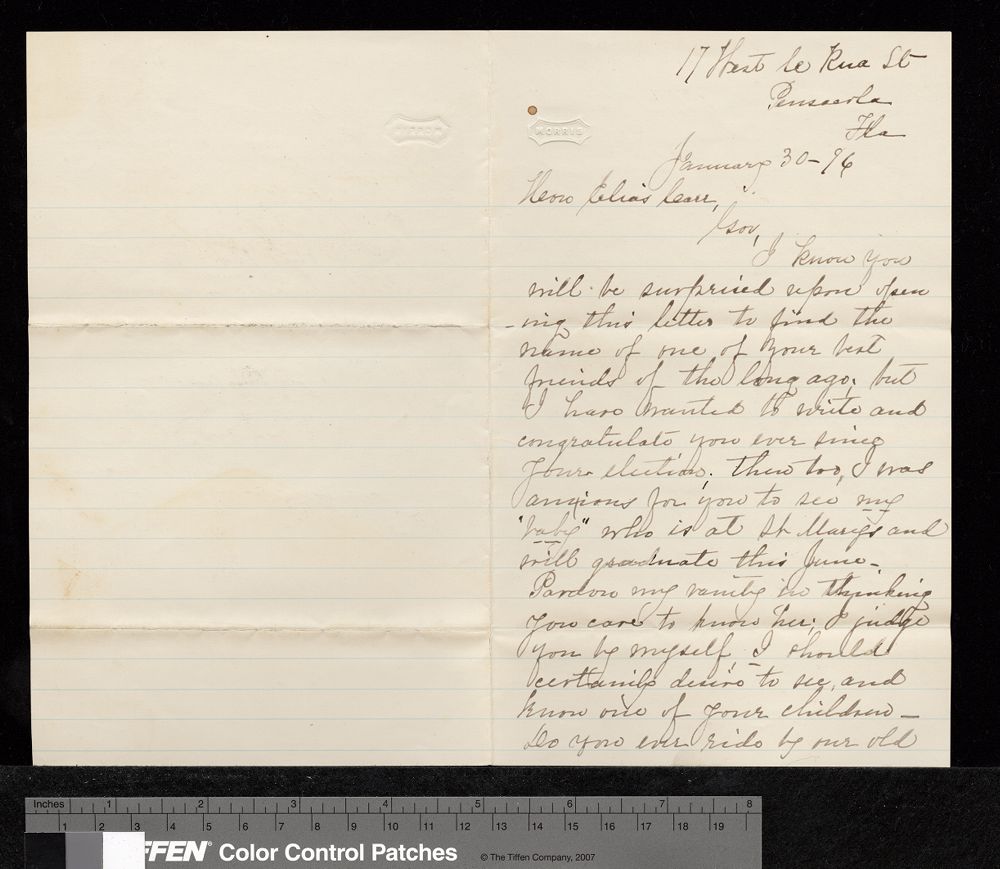 17 West de Rua St
Pensacola
Fla
January 30 - 96
MORRIS
Hon Elias Carr,
Gov,
I know you
will be surprised upon open
-ing this letter to find the
name of one of your best
friends of the long ago, but
I have wanted to write and
congratulate you ever since
your election; then too, I was
anxious for you to see my
"baby" who is at St Marys and
will graduate this June -
Pardon my vanity in thinking
you care to know her; I judge
you by myself, I should
certainly desire to see, and
know one of your children -
Do you ever ride by our old
Inches 1 2 3 4 5 6 7 8
1 2 3 4 5 6 7 8 9 10 11 12 13 14 15 16 17 18 19
FFEN® Color Control Patches © The Tiffen Company, 2007